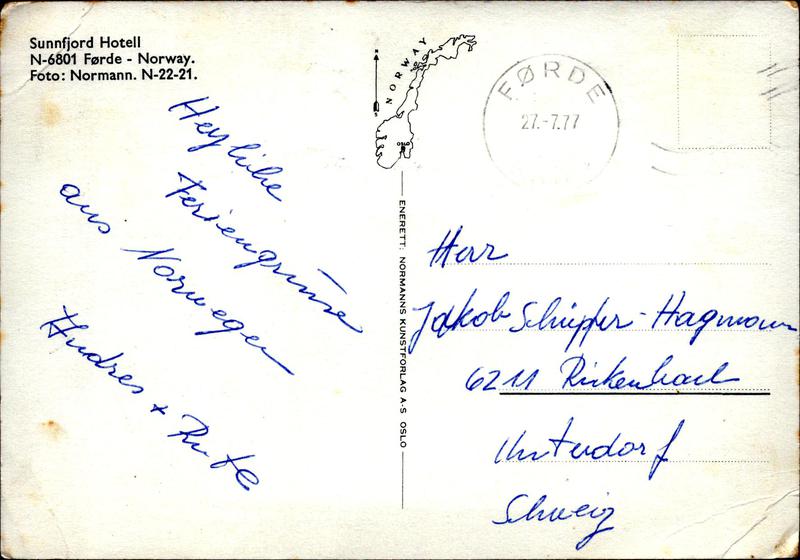 Sunnfjord Hotell
N-6801 Førde - Norway.
Foto: Normann. N-22-21.
Herzliche
Feriengrüsse
aus Norwegen
Andres + Rute
NORWAY
OSLO
ENERETT: NORMANNS KUNSTFORLAG A-S OSLO
FØRDE
27.-7.77
Herr
Jakob Schüpfer-Hagmann
6211 Rickenbach
Unterdorf
Schweiz